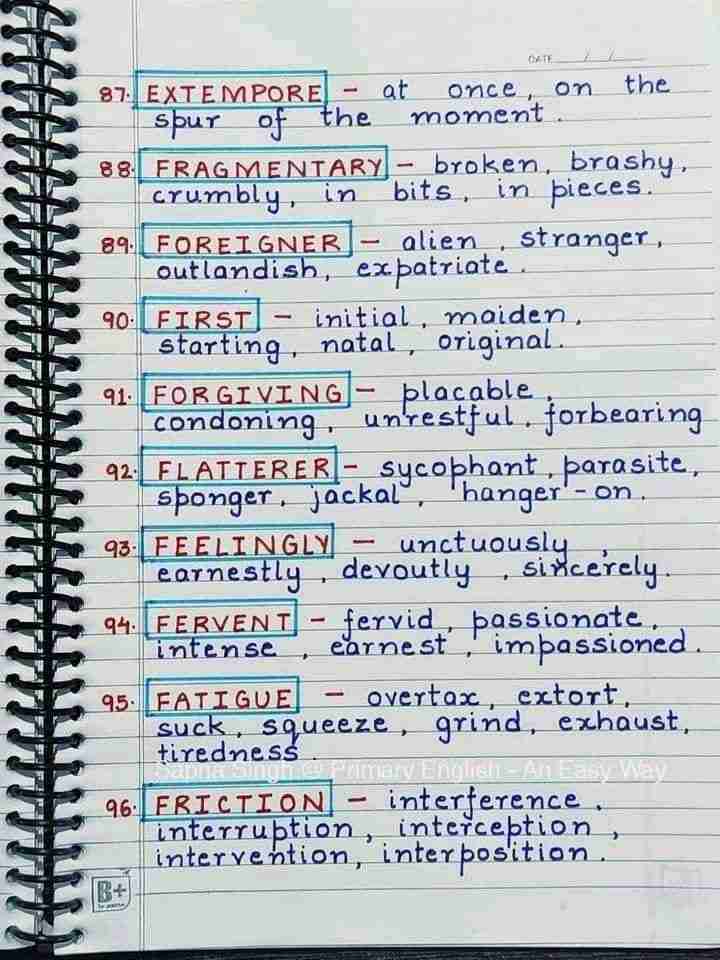 DATE / /
87. EXTEMPORE - at once, on the
spur of the moment.
88. FRAGMENTARY - broken, brashy,
crumbly, in bits, in pieces.
89. FOREIGNER - alien, stranger,
outlandish, expatriate.
90. FIRST - initial, maiden,
starting, natal, original.
91. FORGIVING - placable,
condoning, unrestful, forbearing
92. FLATTERER - sycophant, parasite,
sponger, jackal, hanger-on.
93. FEELINGLY - unctuously,
earnestly, devoutly, sincerely.
94. FERVENT - fervid, passionate,
intense, earnest, impassioned.
95. FATIGUE - overtax, extort,
suck, squeeze, grind, exhaust,
tiredness
Sapna Singh @ Primary English - An Easy Way
96. FRICTION - interference,
interruption, interception,
intervention, interposition.
B+